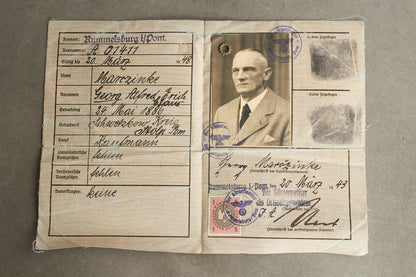 Kennort: Rummelsburg i/Pom.
Kennummer: A 01411
Gültig bis 20. März 1948
Name Marczinke
Vornamen Georg Alfred Erich
Geburtstag 24. Mai 1880
Geburtsort Kreis
Stolp Pom
Beruf Kaufmann
Unveränderliche
Kennzeichen
Veränderliche
Kennzeichen fehlen
Bemerkungen: keine
Rechter Zeigefinger
Linker Zeigefinger
Georg Marczinke
(Unterschrift des Kennkarteninhabers)
Rummelsburg i/Pom. den 20. März 1943
Der Bürgermeister
als Ortspolizeibehörde
(Unterschrift des ausfertigenden Beamten)